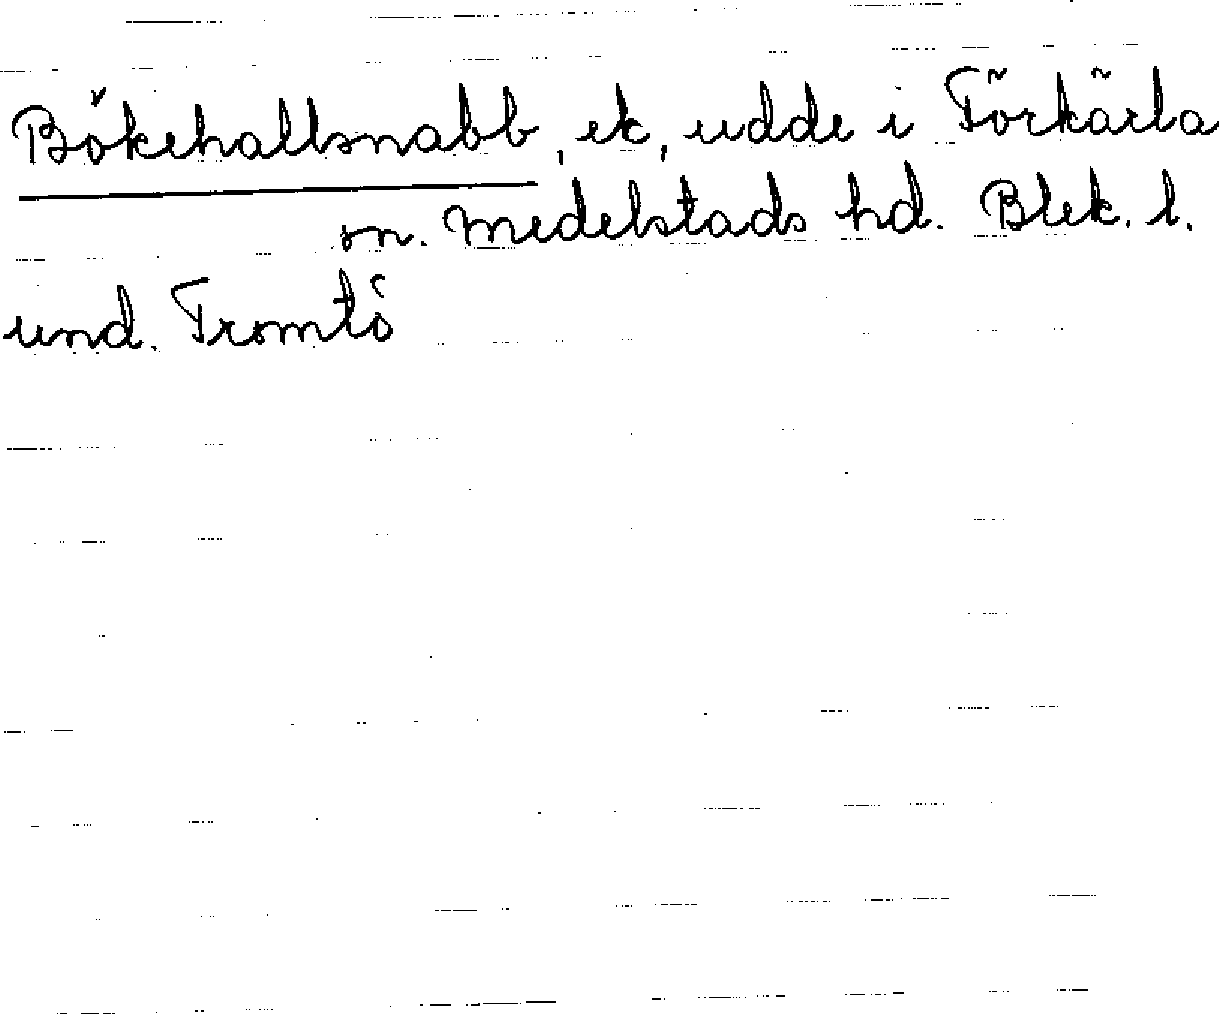 Bökehallsnabb, ek, udde i Förkärla
sn. Medelstads hd. Blek. l.
und. Tromtö